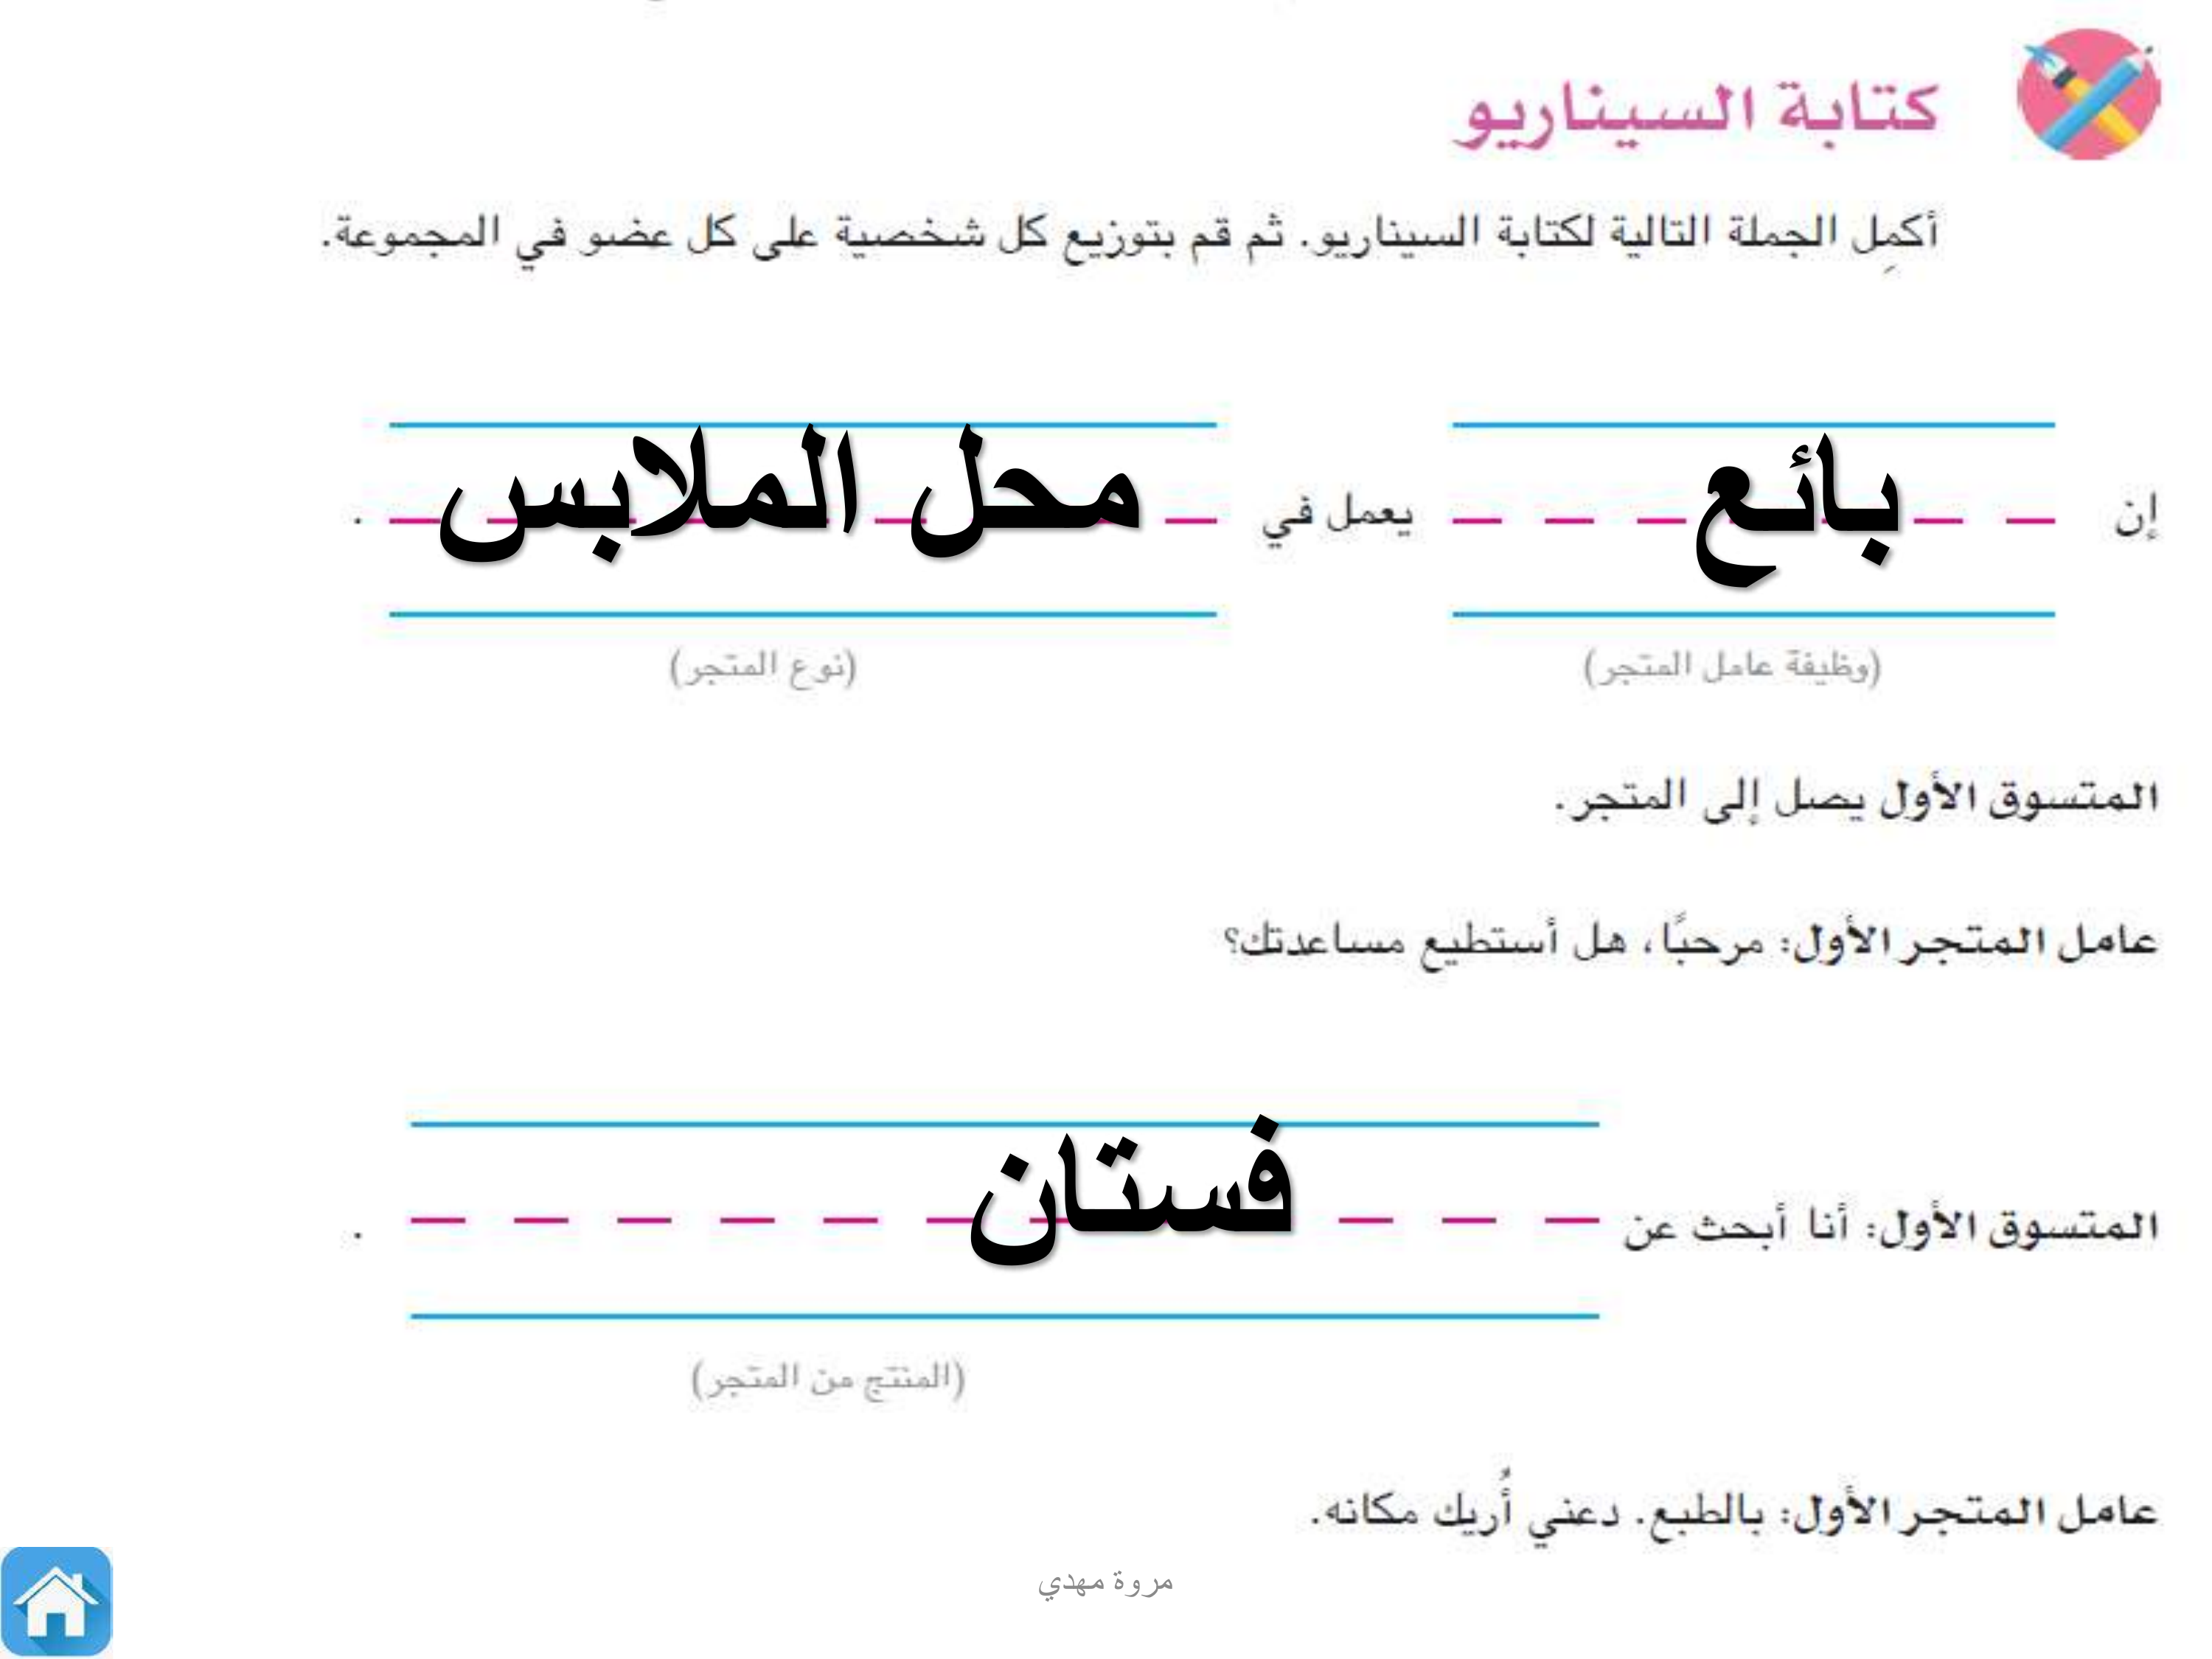 كتابة السيناريو
أكمِل الجملة التالية لكتابة السيناريو. ثم قم بتوزيع كل شخصية على كل عضو في المجموعة.
إن بائع يعمل في محل الملابس .
(وظيفة عامل المتجر) (نوع المتجر)
المتسوق الأول يصل إلى المتجر.
عامل المتجر الأول: مرحبًا، هل أستطيع مساعدتك؟
المتسوق الأول: أنا أبحث عن فستان .
(المنتج من المتجر)
عامل المتجر الأول: بالطبع. دعني أُريك مكانه.
مروة مهدي